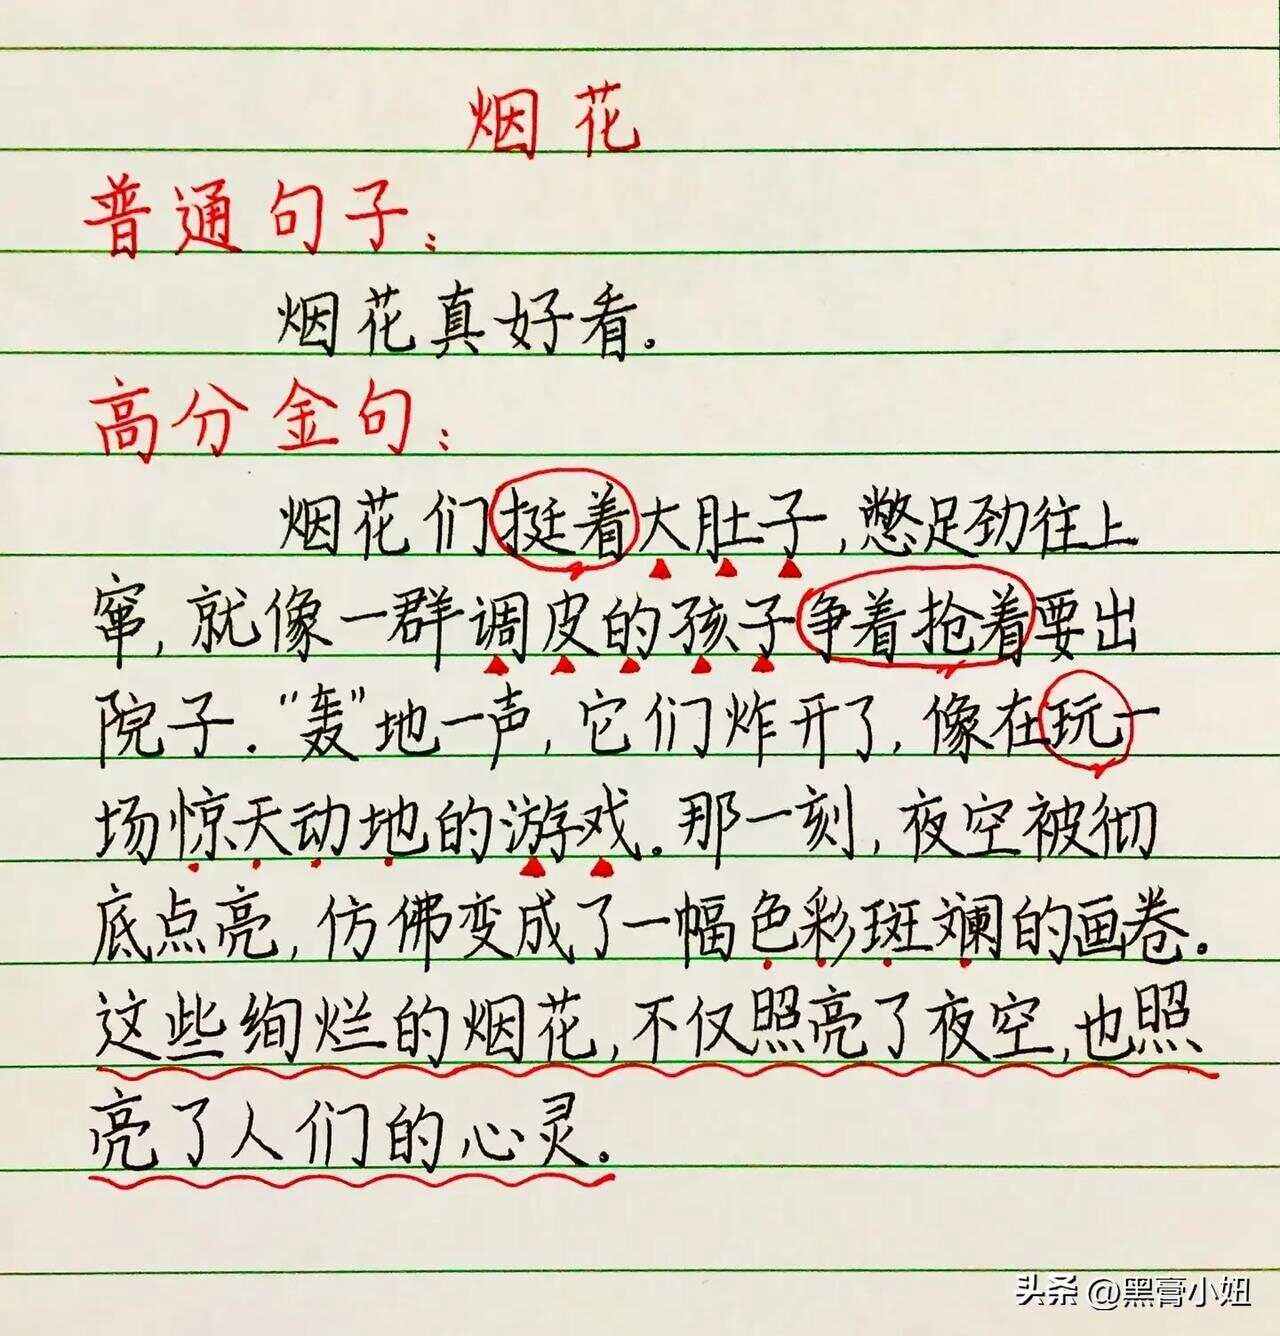 烟花
普通句子:
烟花真好看.
高分金句:
烟花们挺着大肚子,憋足劲往上
窜,就像一群调皮的孩子争着抢着要出
院子.“轰”地一声,它们炸开了,像在玩一
场惊天动地的游戏.那一刻,夜空被彻
底点亮,仿佛变成了一幅色彩斑斓的画卷.
这些绚烂的烟花,不仅照亮了夜空,也照
亮了人们的心灵.
头条 @黑膏小妞